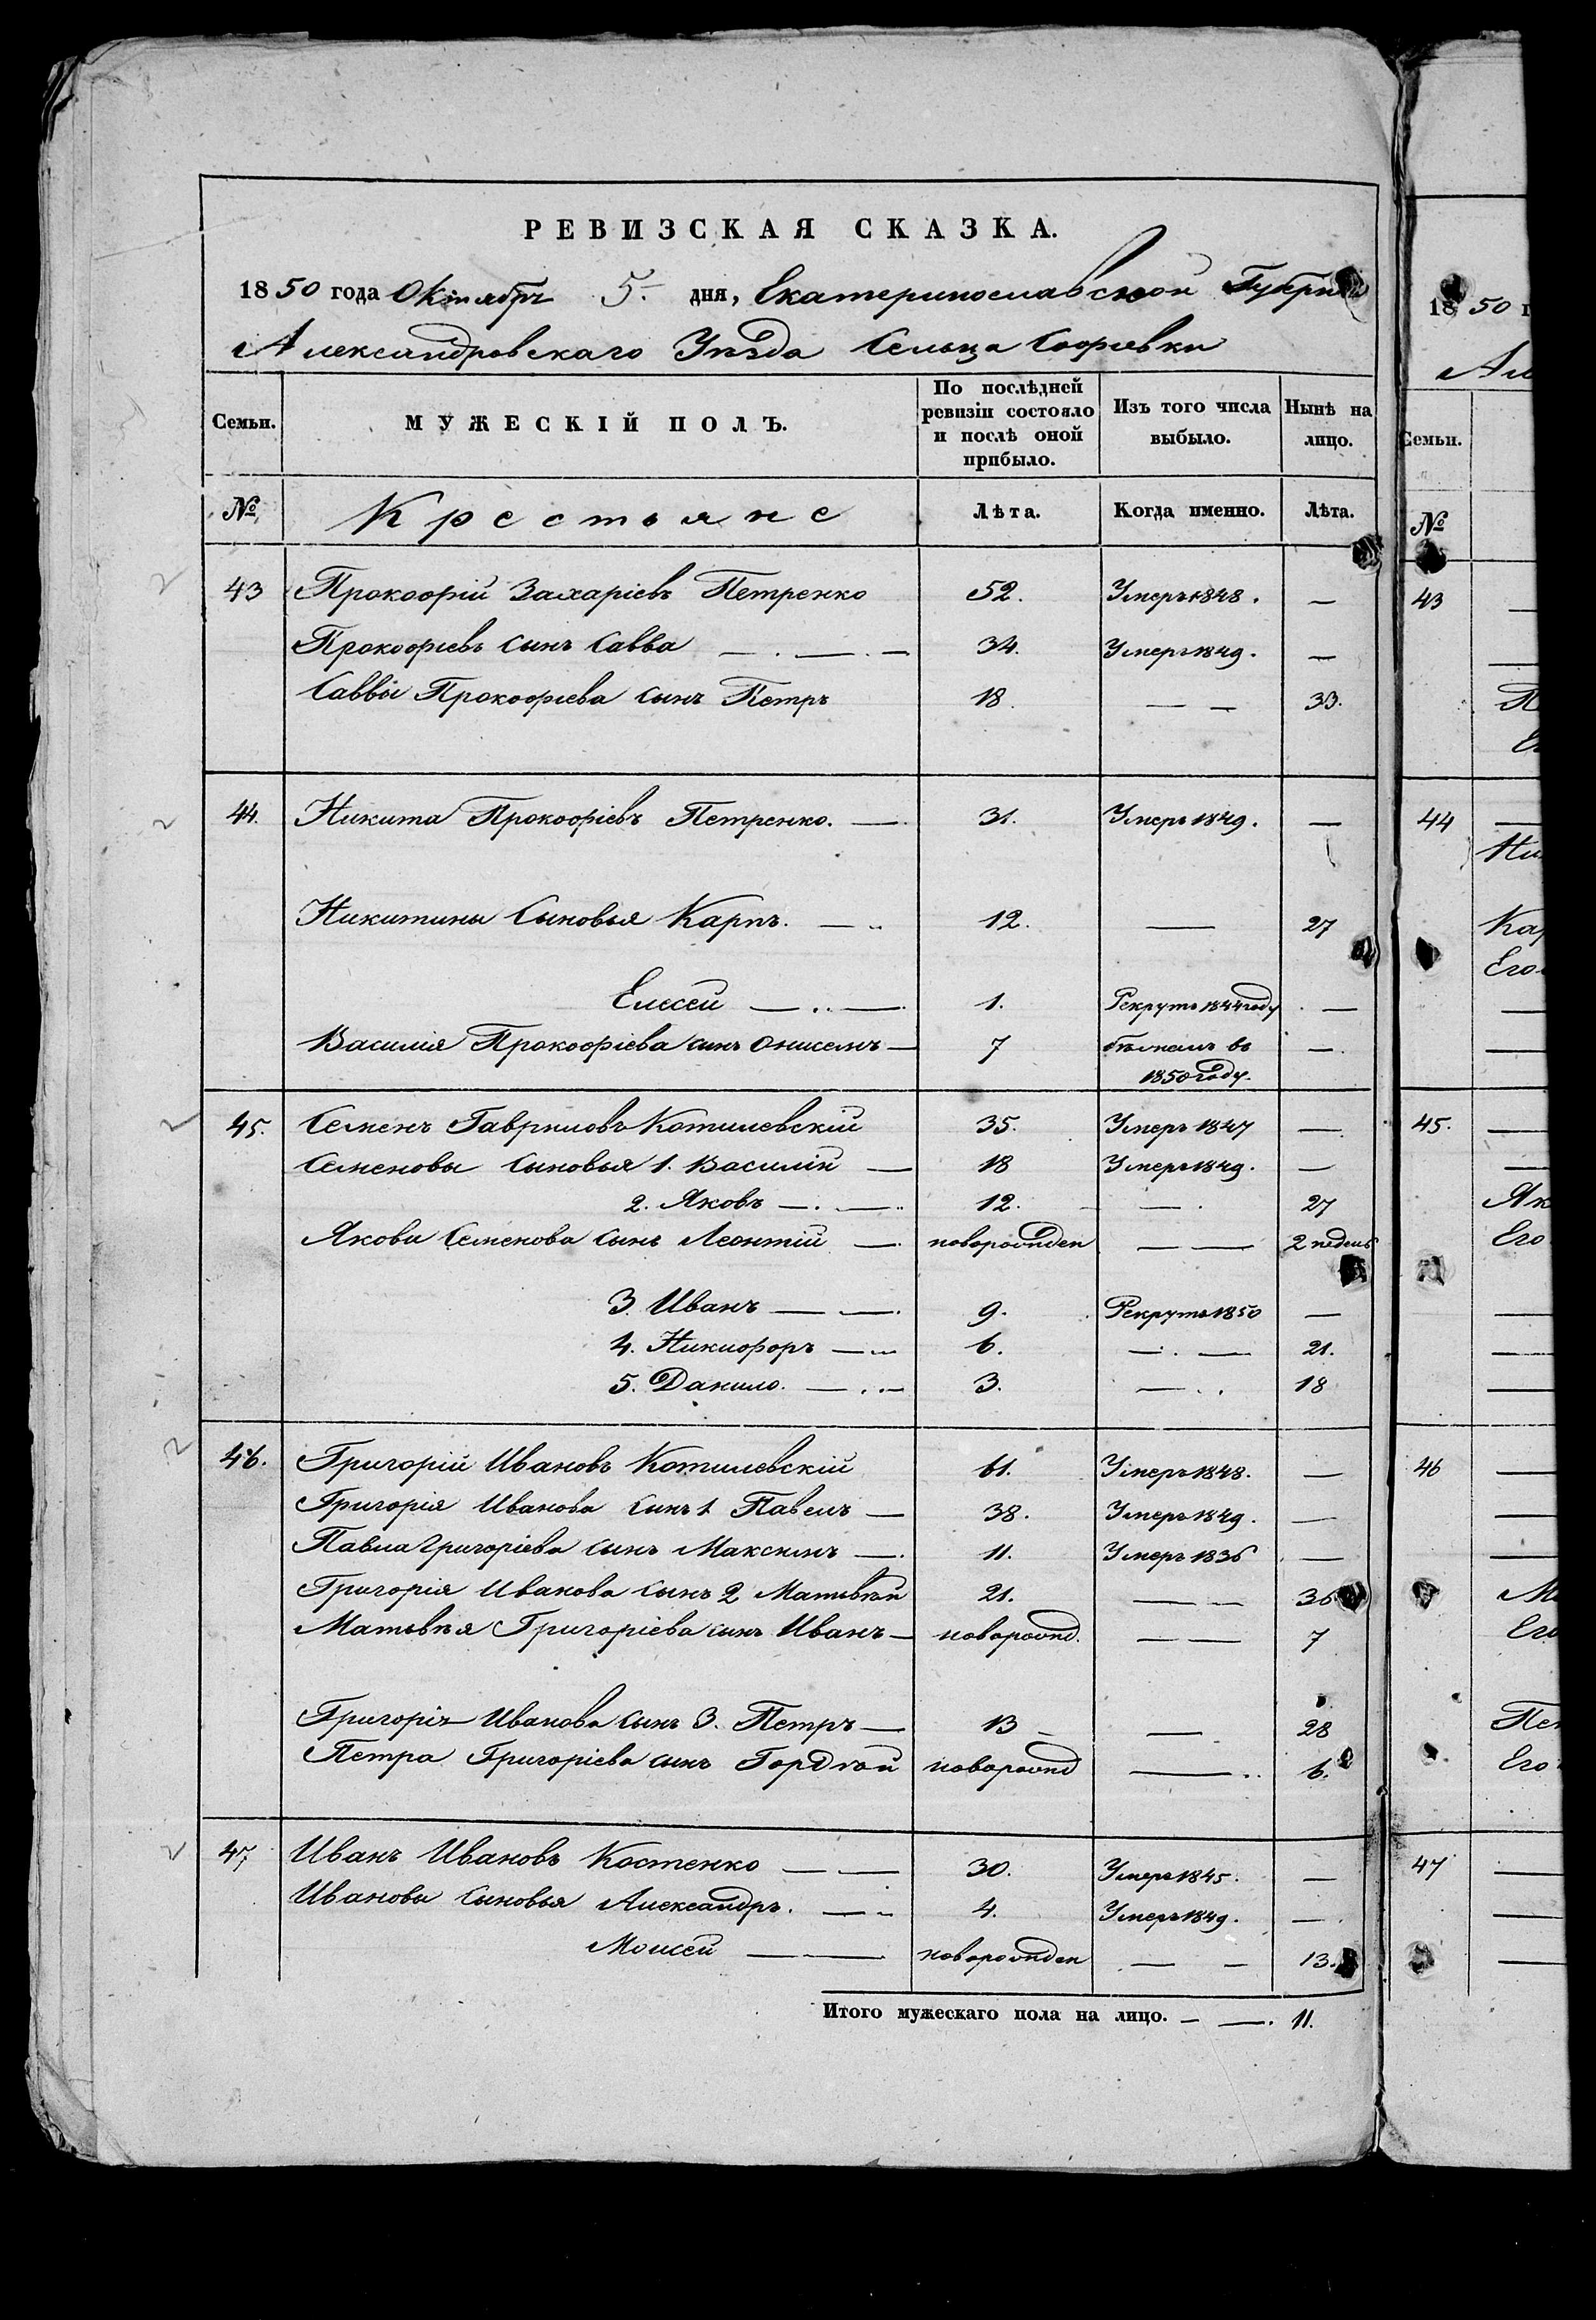 РЕВИЗСКАЯ СКАЗКА.
1850 года Октября 5. дня, Екатеринославской Губерніи
Александровскаго Уѣзда Сельца Софіевки
Семьи. МУЖЕСКІЙ ПОЛЪ. По послѣдней ревизіи состояло и послѣ оной прибыло. Изъ того числа выбыло. Нынѣ на лицо.
№ Крестьяне Лѣта. Когда именно. Лѣта.
43 Прокофій Захаріевъ Петренко 52. Умеръ 1848. —
Прокофіевъ сынъ Савва — . — . — 34. Умеръ 1849. —
Саввы Прокофіева сынъ Петръ 18. — — 33.
44. Никита Прокофіевъ Петренко. — 31. Умеръ 1849. —
Никитины Сыновья Карпъ. — .. 12. — 27
Елесей — .. — 1. Рекрутъ 1844 году . —
Василія Прокофіева сынъ Онисимъ — 7 бѣжалъ въ —.
1850 году.
45. Семенъ Гавриловъ Котилевскій 35. Умеръ 1847 —.
Семеновы Сыновья 1. Василій — 18 Умеръ 1849. —
2. Яковъ — . — .. 12. — . 27
Якова Семенова сынъ Леонтій — новорожден — — 2 недель
3. Иванъ — — . 9. Рекрутъ 1850 —
4. Никифоръ — .. 6. — . — 21.
5. Данило. — . . — 3. — . . 18
46. Григорій Ивановъ Котилевскій 61. Умеръ 1848. —
Григорія Иванова Сынъ 1 Павелъ — 38. Умеръ 1849. —
Павла Григоріева сынъ Максимъ — . 11. Умеръ 1836 . —
Григорія Иванова сынъ 2 Матвѣй 21. — — 36
Матвѣя Григоріева сынъ Иванъ — новорожд. — — 7
Григорія Иванова сынъ 3. Петръ — 13 — — 28
Петра Григоріева сынъ Гордѣй новорожд — .. 6.
47 Иванъ Ивановъ Костенко — — 30. Умеръ 1845. —
Ивановы Сыновья Александръ. — .. 4. Умеръ 1849. — .
Моисей — — новорожден . — — 13.
Итого мужескаго пола на лицо. — — . 11.
1850 г
Ал
Семьи.
№
43
П
Е
44
Ни
Кар
Его
45.
Як
Его
46
Ма
Его
Пет
Его
47